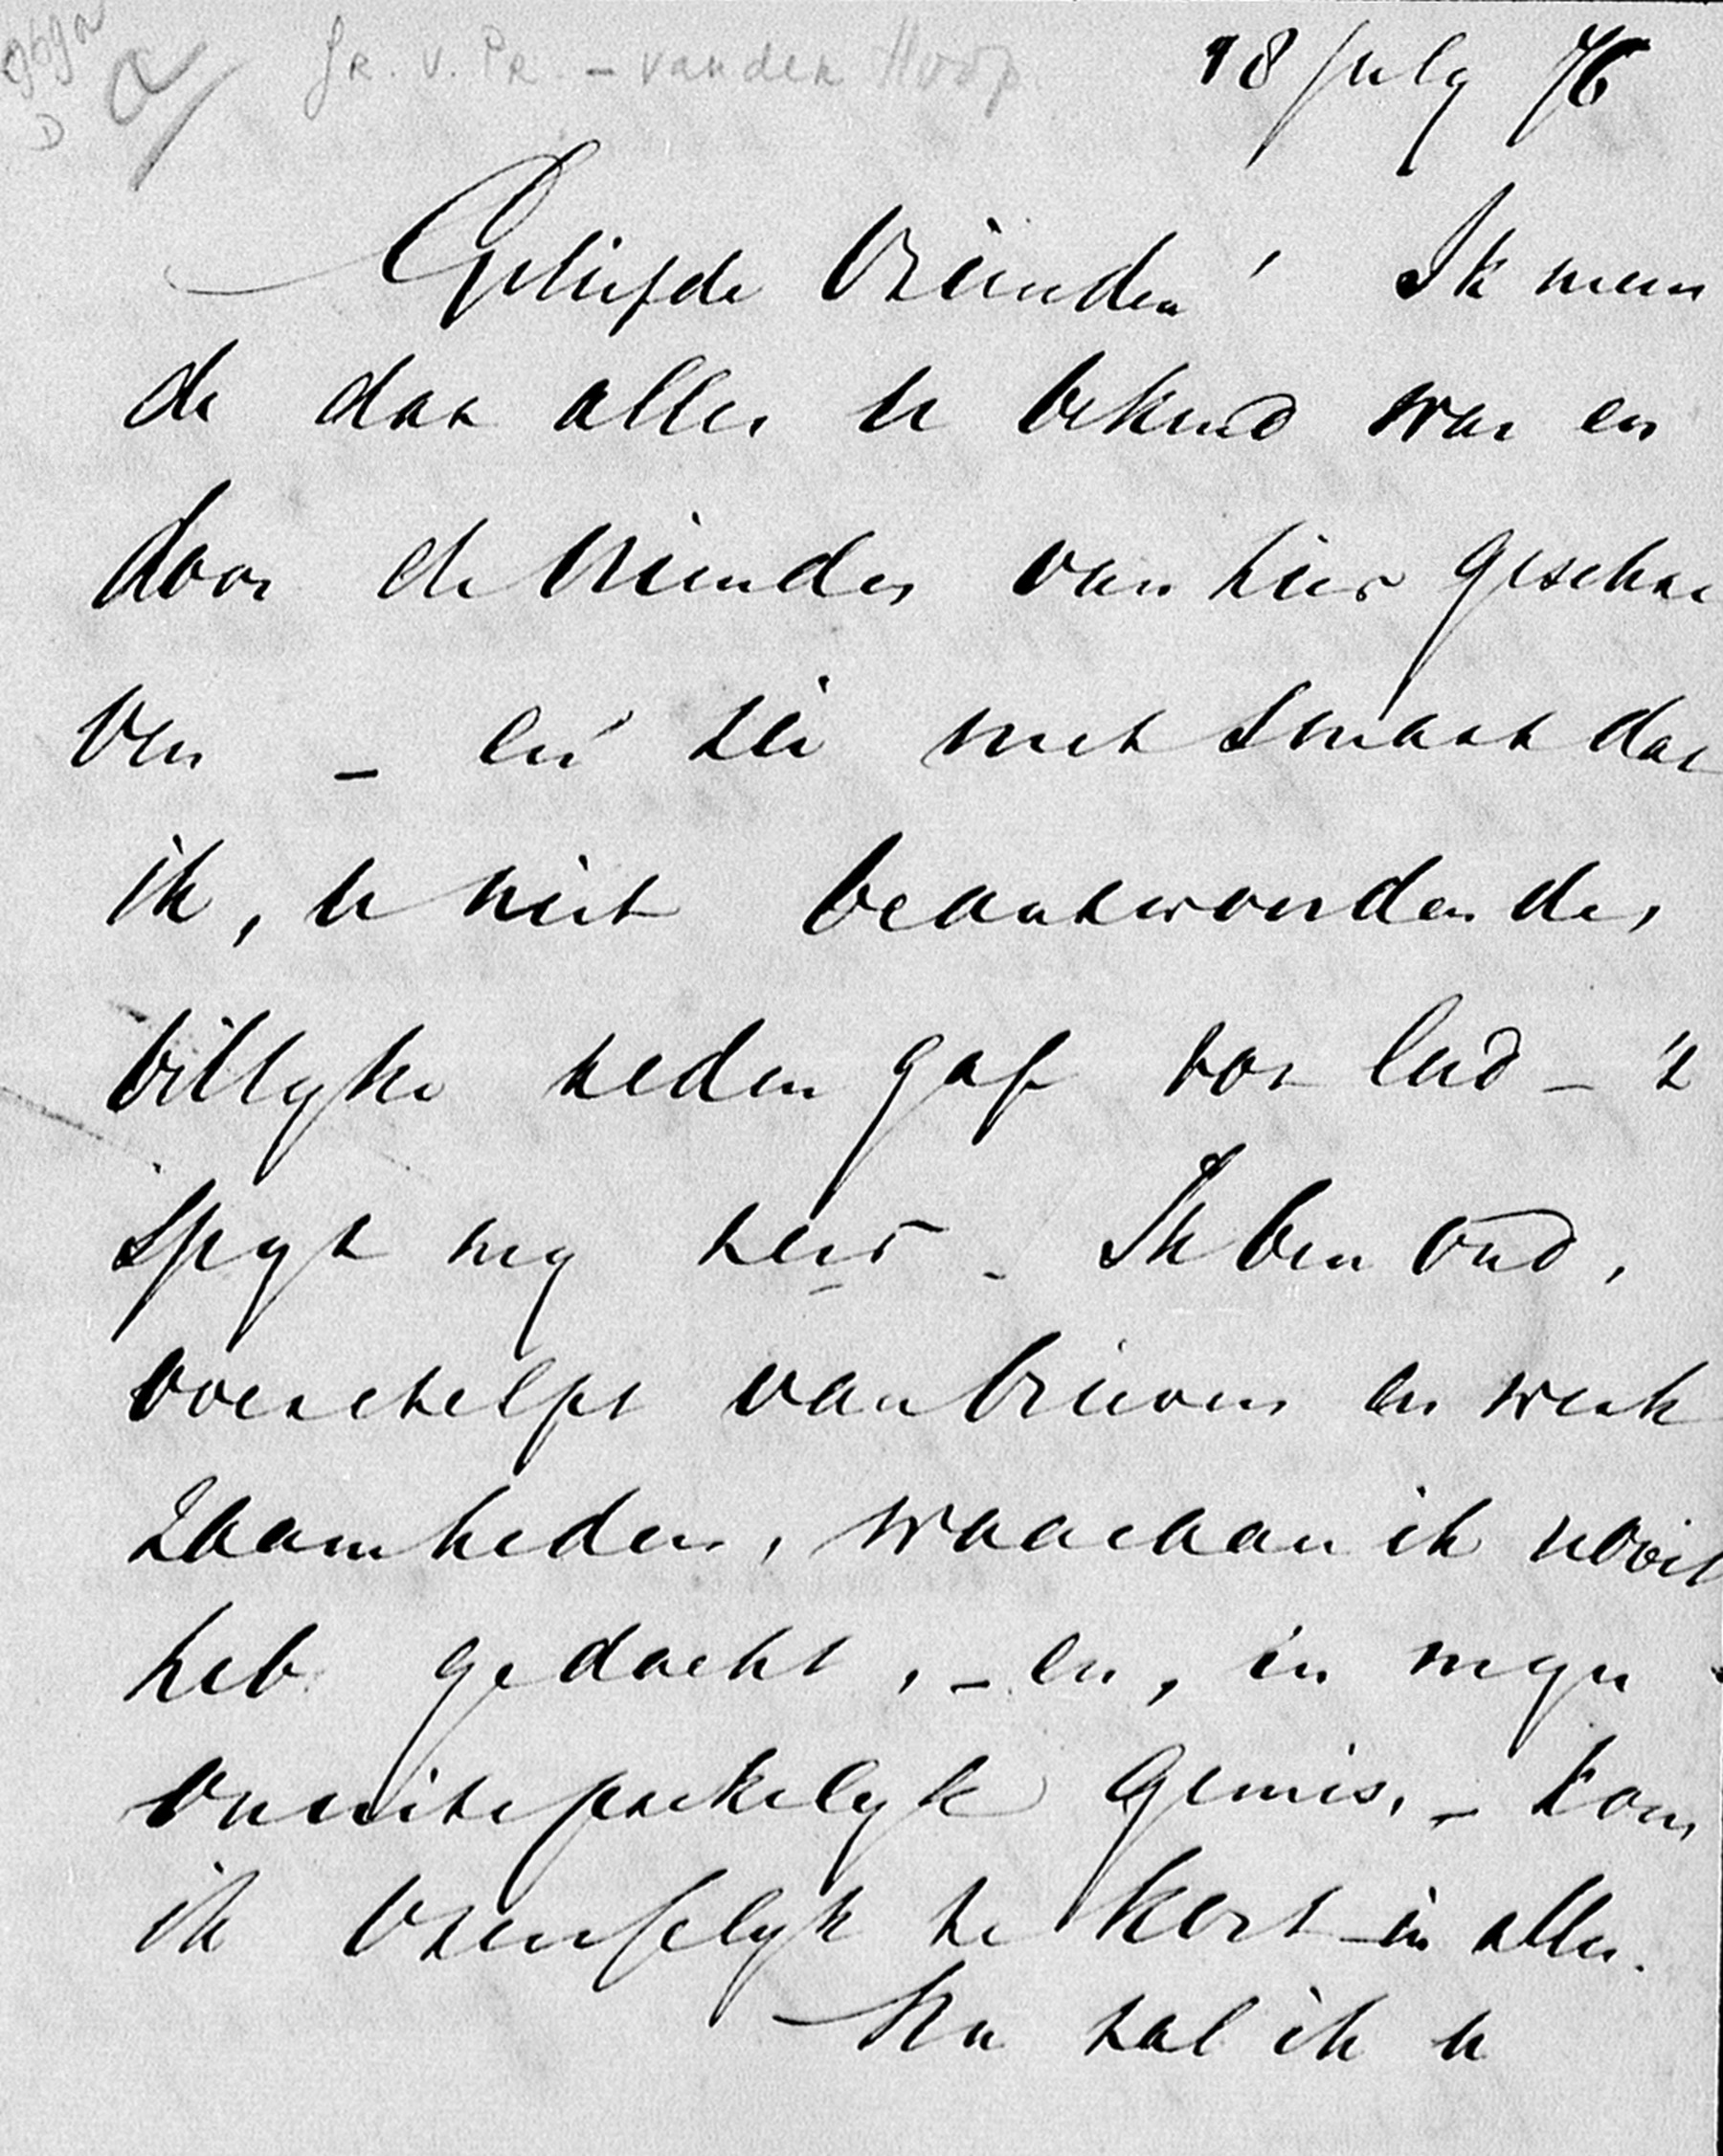 969a
D
a/ Gr. v. Pr. – van der Hoop
18 July 76
Geliefde Vrienden! Ik meen
de dat alles u bekend was en
door de vrienden van hier geschre
ven – en zie met smart dat
ik, u niet beantwoordende,
billyke reden gaf tot leed – 't
spyt my zeer – Ik ben oud,
overstelpt van brieven en werk
zaamheden, waaraan ik nooit
heb gedacht, – en, in myn
onuitsprekelyk gemis, – kom
ik vreesselyk te kort in alles.
Nu zal ik u